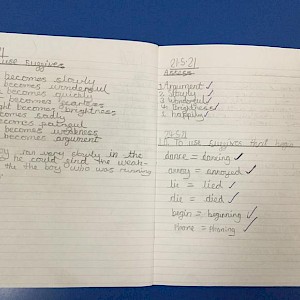 use suffixes
becomes slowly
becomes wonderful
becomes quickly
becomes fearless
becomes brightness
becomes sadly
becomes painful
becomes weakness
becomes argument
ran very slowly in the
he could find the weak-
the boy who was running
21.5.21
Assess
1. Argument ✓
2. slowly ✓
3. wonderful ✓
4. Brightness ✓
5. happily ✓
24.5.21
L.O. To use suffixes that
dance = dancing ✓
annoy = annoyed ✓
lie = lied ✓
die = died ✓
begin = beginning ✓
Phone = Phoning ✓